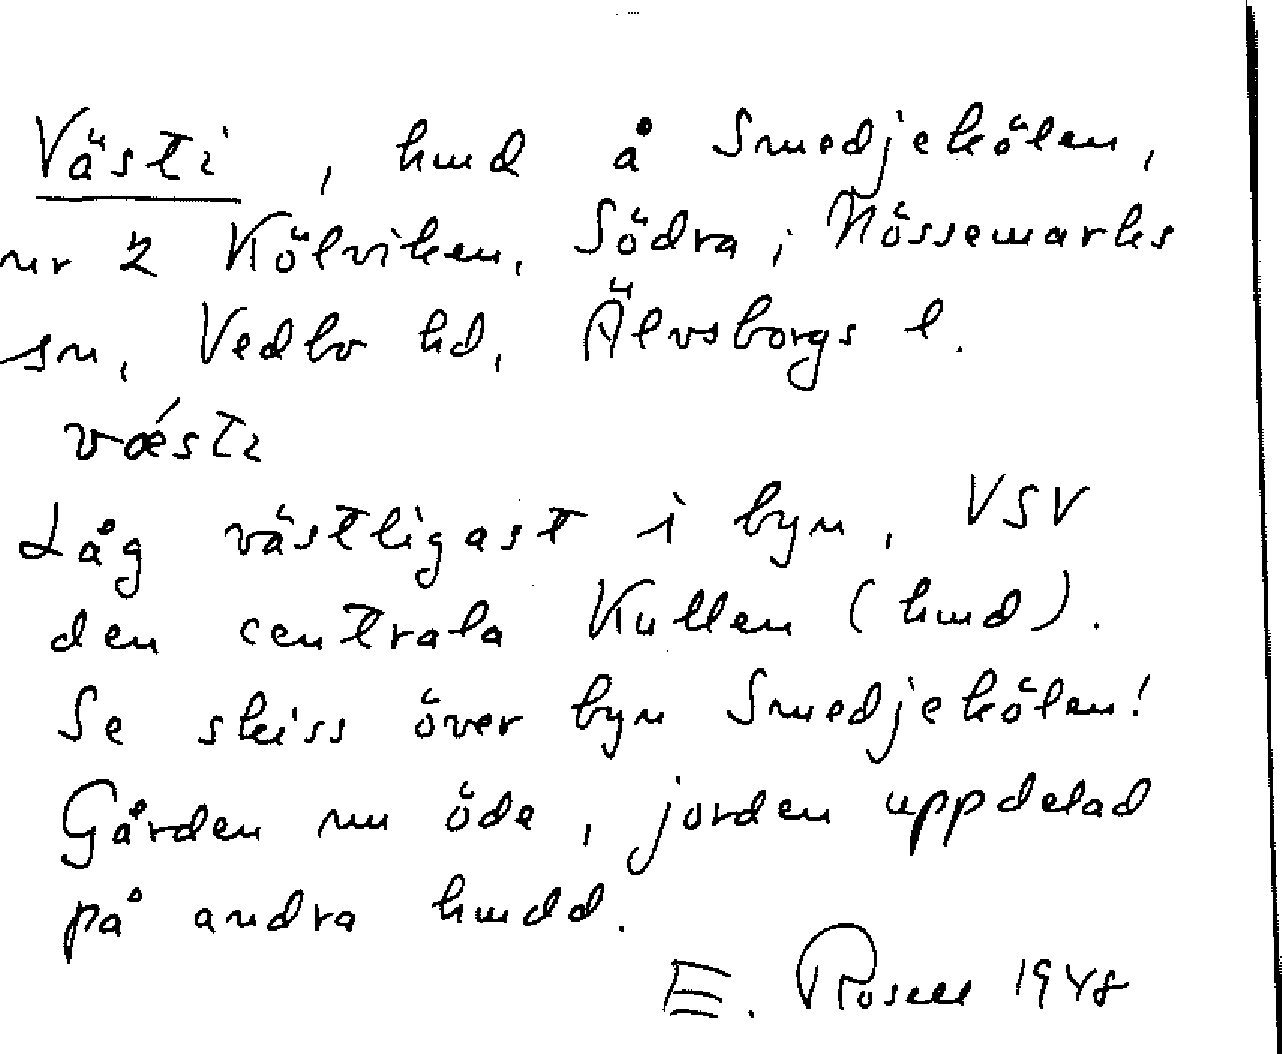 Västi , hmd å Smedjekölen,
nr 2 Kölviken, Södra ; Nössemarks
sn, Vedbo hd, Älvsborgs l.
vǽsti
Låg västligast i byn, VSV
den centrala Kullen (hmd).
Se skiss över byn Smedjekölen!
Gården nu öde, jorden uppdelad
på andra hmdd.
E. Rosell 1948